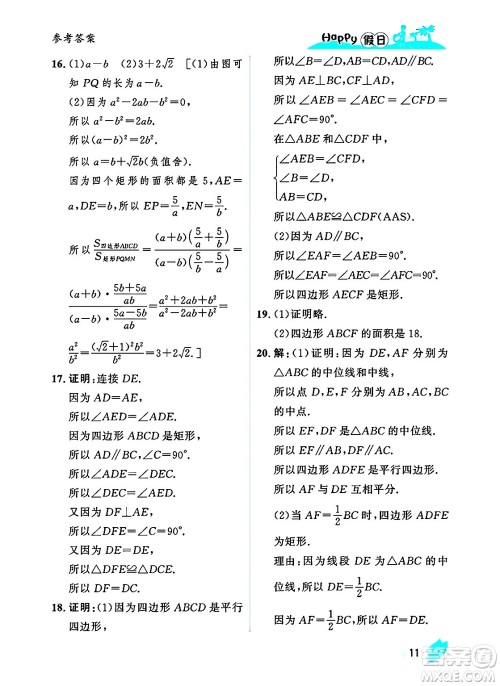 参考答案
Happy 假日
16. (1)a−b (2)3+2√2 [(1)由图可
知 PQ 的长为 a−b.
(2)因为 a²−2ab−b²=0,
所以 a²−b²=2ab.
所以 (a−b)²=2b².
所以 a=b+√2b(负值舍).
因为四个矩形的面积都是 5,AE=
a,DE=b,所以 EP=5/a,EN=5/b.
所以 S四边形ABCD/S矩形PQMN=(a+b)(5/a+5/b)/(a−b)(5/b−5/a)=
(a+b)·(5b+5a)/ab / (a−b)·(5a−5b)/ab=(a+b)²/(a−b)²=
a²/b²=(√2+1)²b²/b²=3+2√2.]
17. 证明:连接 DE.
因为 AD=AE,
所以∠AED=∠ADE.
因为四边形 ABCD 是矩形,
所以 AD∥BC,∠C=90°.
所以∠ADE=∠DEC.
所以∠DEC=∠AED.
又因为 DF⊥AE,
所以∠DFE=∠C=90°.
又因为 DE=DE,
所以△DFE≌△DCE(AAS).
所以 DF=DC.
18. 证明:(1)因为四边形 ABCD 是平行
四边形,
所以∠B=∠D,AB=CD,AD∥BC.
因为 AE⊥BC,CF⊥AD,
所以∠AEB=∠AEC=∠CFD=
∠AFC=90°.
在△ABE 和△CDF 中,
∠AEB=∠CFD,
∠B=∠D,
AB=CD,
所以△ABE≌△CDF(AAS)
(2)因为 AD∥BC,
所以∠EAF=∠AEB=90°.
所以∠EAF=∠AEC=∠AFC=90°.
所以四边形 AECF 是矩形.
19. (1)证明略.
(2)四边形 ABCF 的面积是 18.
20. 解:(1)证明:因为 DE,AF 分别为
△ABC 的中位线和中线,
所以点 D,E,F 分别是 AB,AC,BC
的中点.
所以 DF,EF 是△ABC 的中位线.
所以 DF∥AC,EF∥AB.
所以四边形 ADFE 是平行四边形.
(2)当 AF=1/2BC 时,四边形 ADFE
为矩形.
理由:因为线段 DE 为△ABC 的中
位线,所以 DE=1/2BC.
因为 AF=1/2BC,所以 AF=DE.
11